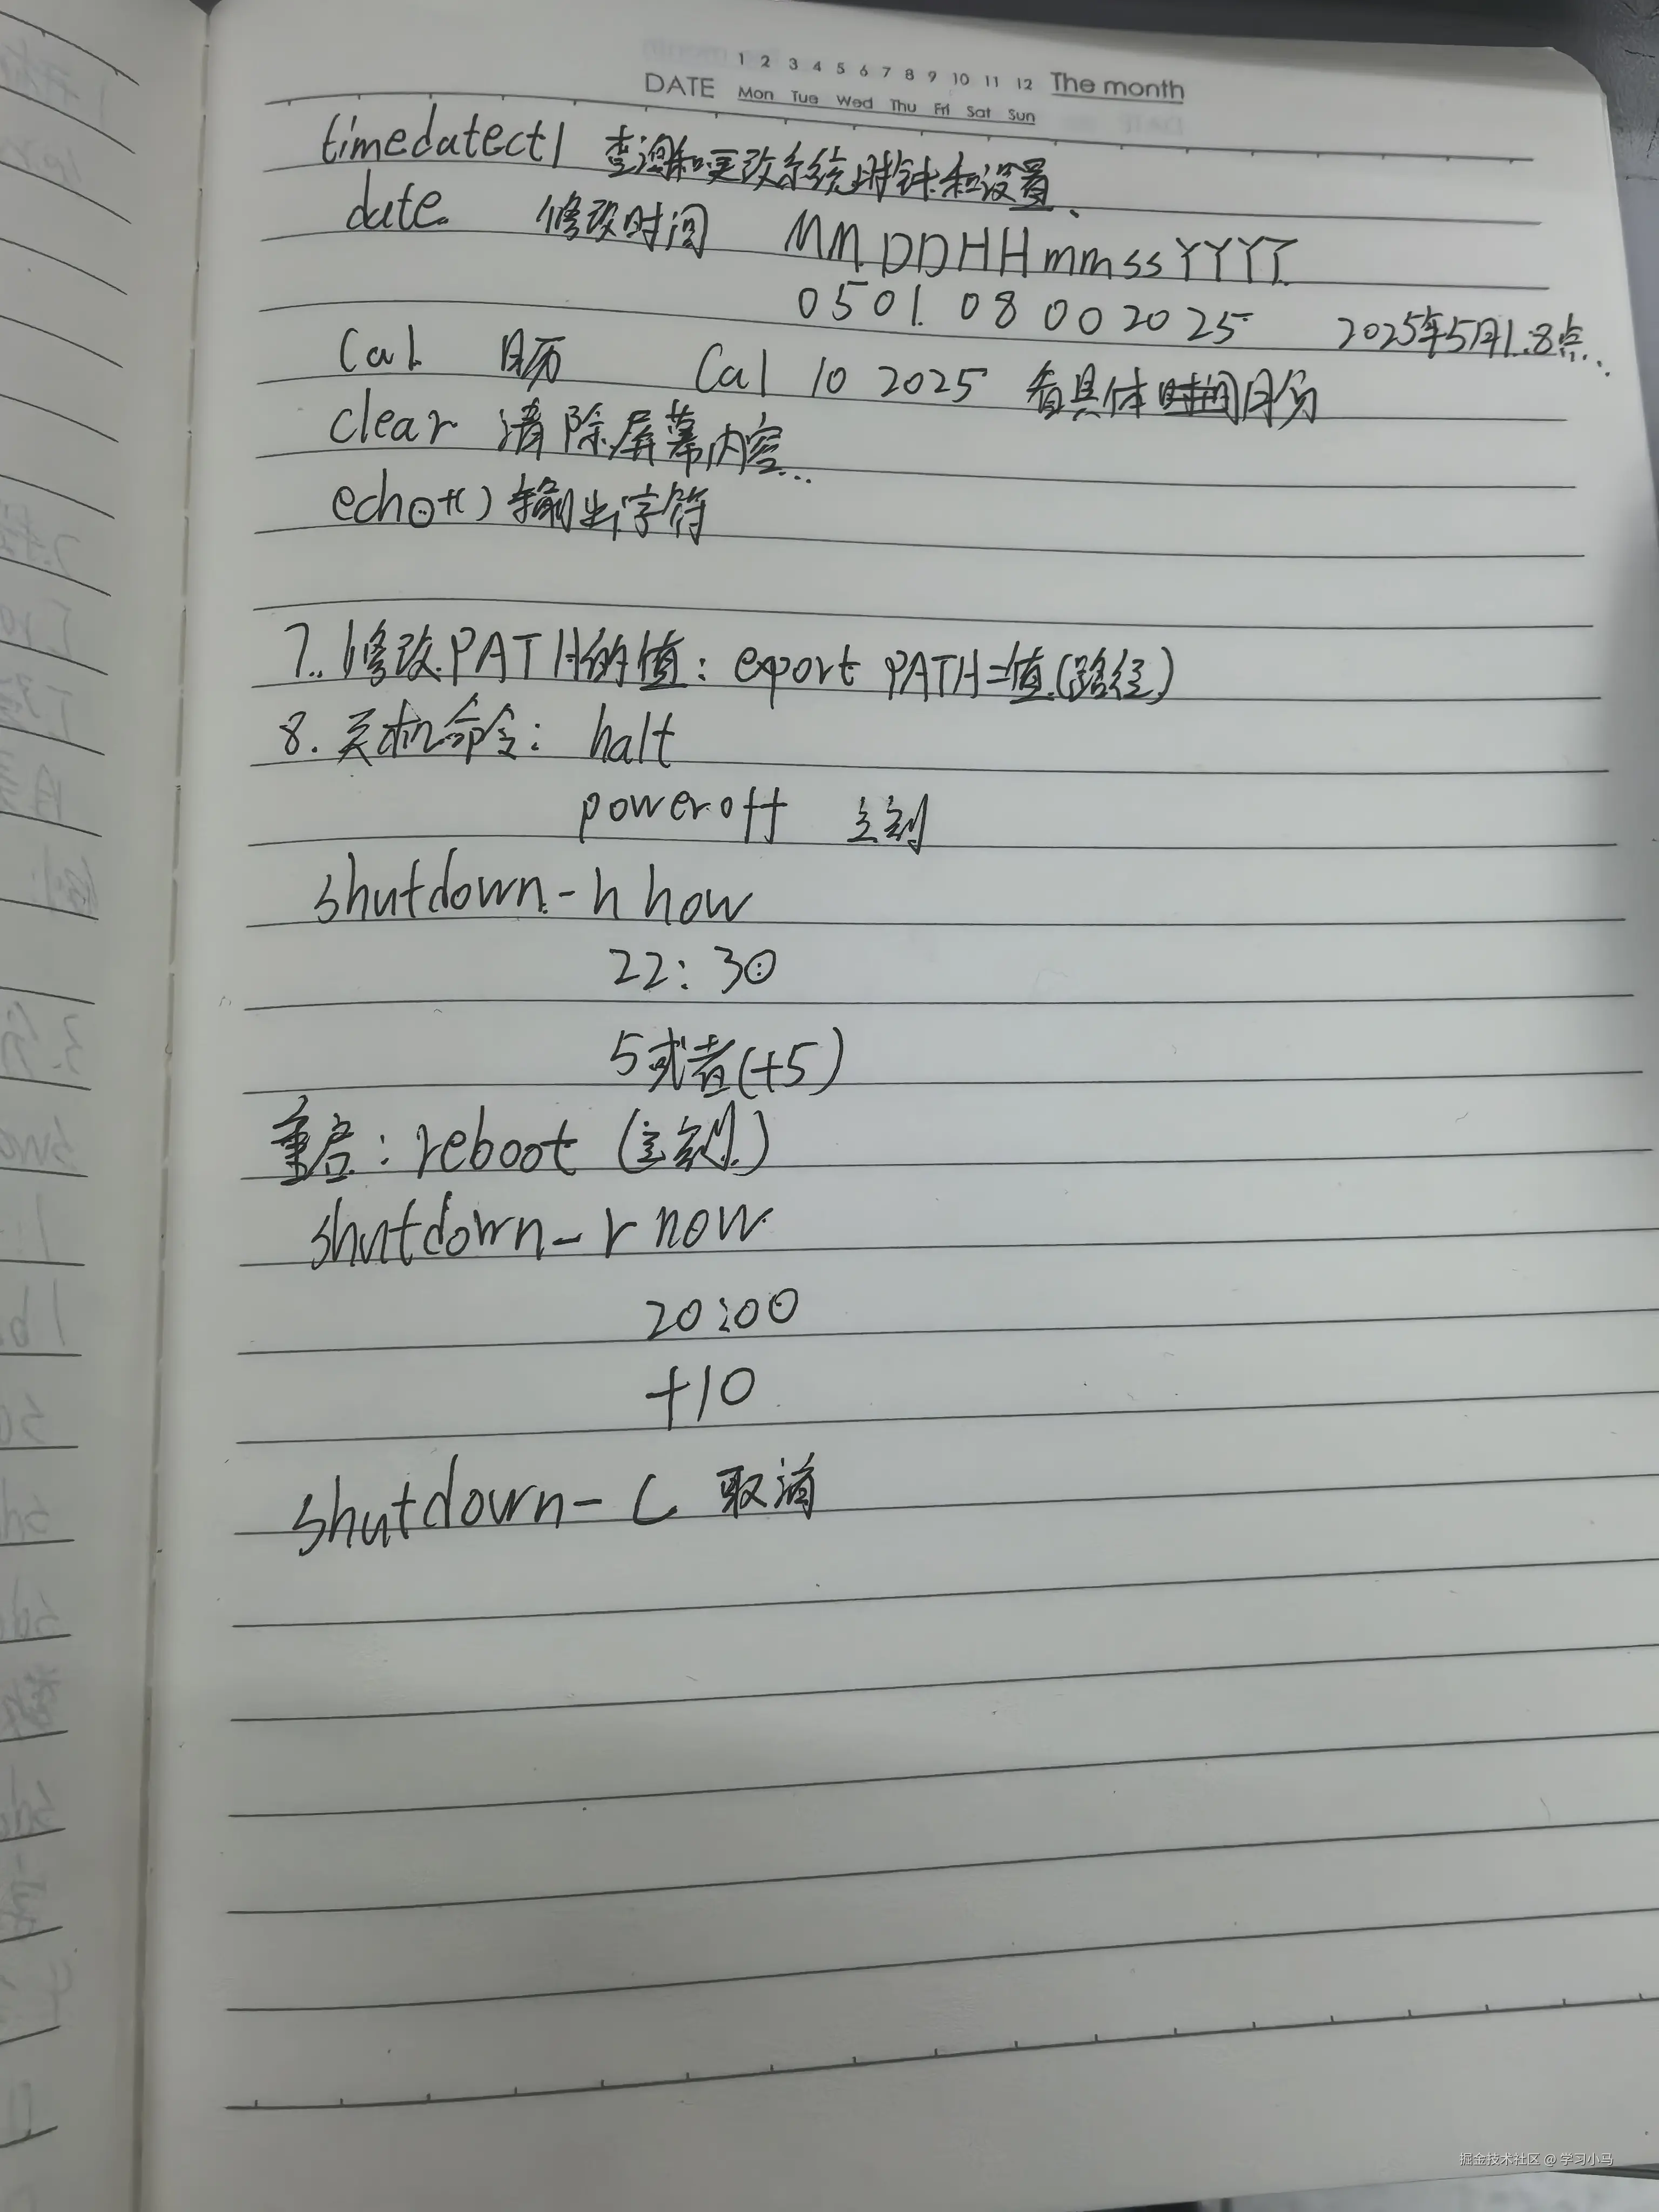 1 2 3 4 5 6 7 8 9 10 11 12 The month
DATE Mon Tue Wed Thu Fri Sat Sun
timedatectl 查询和更改系统时钟和设置、
date 修改时间 MMDDHHmmssYYYY
0501 08 00 2025 2025年5月1.8点..
Cal 日历 Cal 10 2025 看具体月份
clear 清除屏幕内容...
echo+() 输出字符
7. 修改PATH的值: export PATH=值(路径)
8. 关机命令: halt
poweroff 立刻
shutdown -h how
22:30
5或者(+5)
重启: reboot (立刻)
shutdown -r now
20:00
+10
shutdown -c 取消
掘金技术社区 @ 学习小马